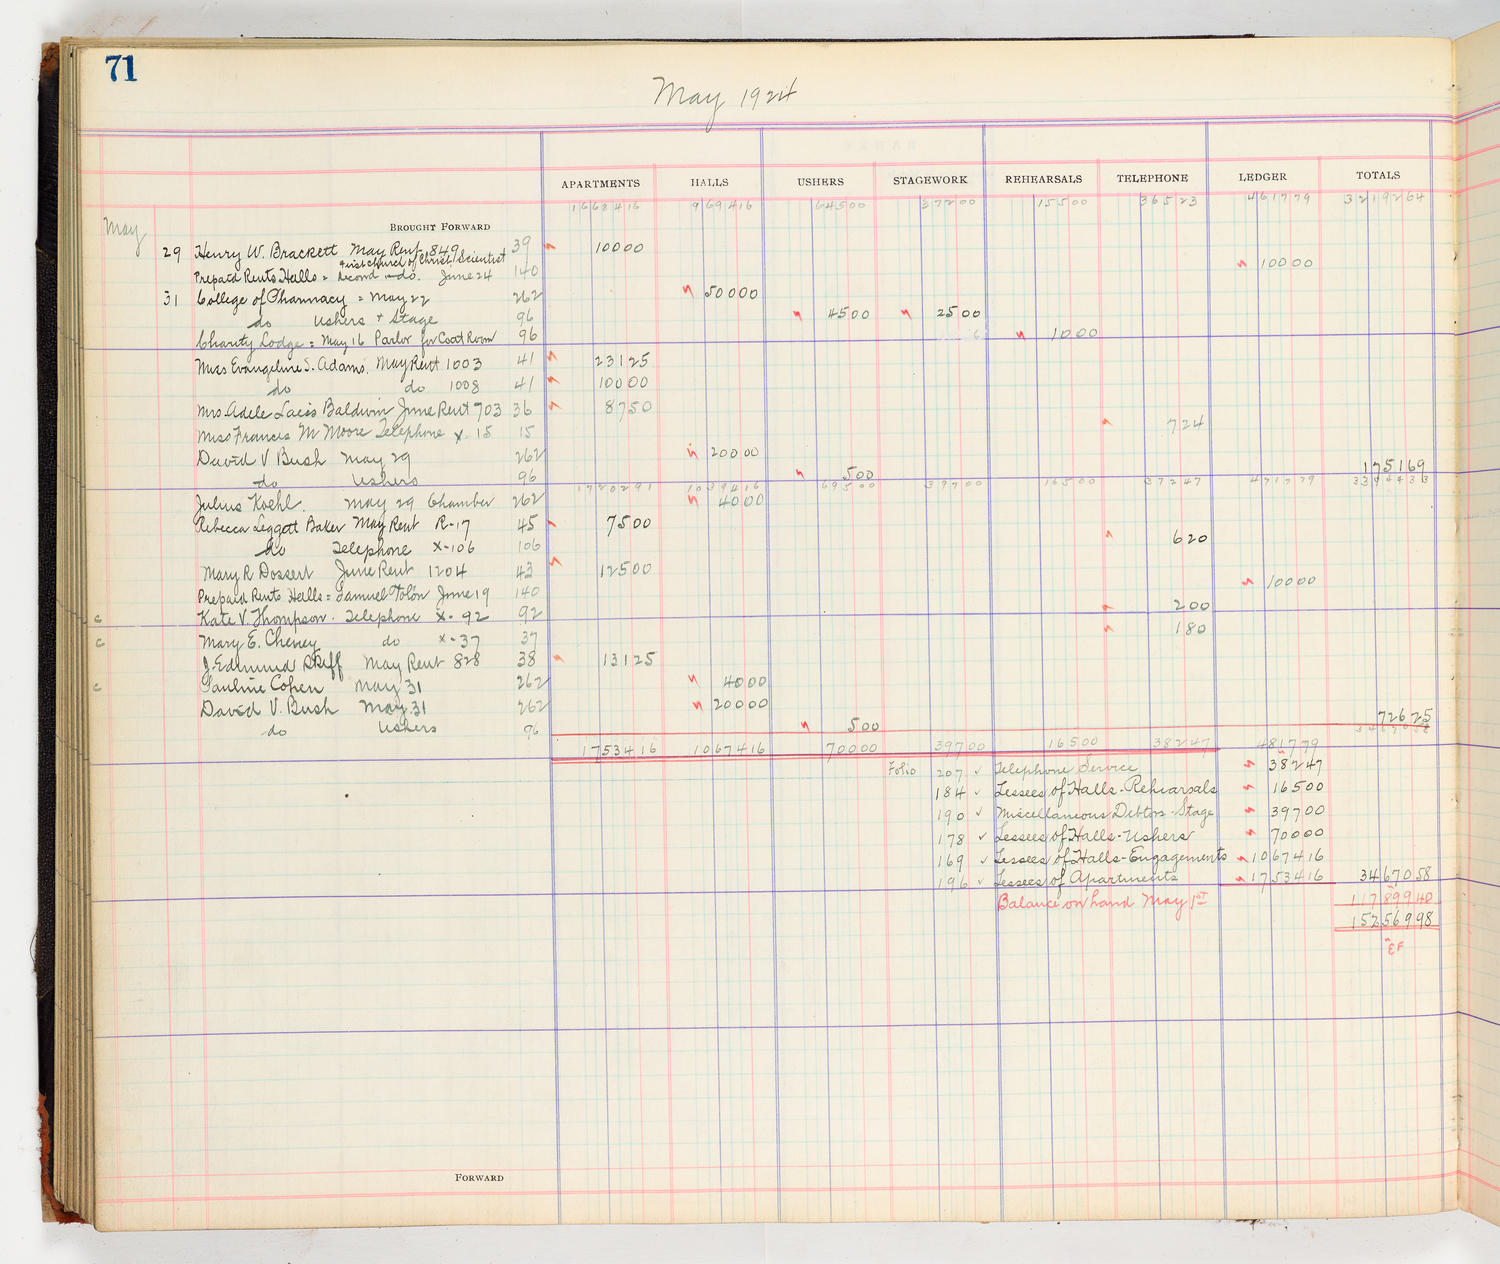 71
May 1924
APARTMENTS HALLS USHERS STAGEWORK REHEARSALS TELEPHONE LEDGER TOTALS
1668416 969416 64500 37200 15500 36523 461779 3219264
May BROUGHT FORWARD
29 Henry W. Brackett May Rent 849 39 10000
First Church of Christ Scientist
Prepaid Rents Halls = Second do. June 24 140 10000
31 College of Pharmacy = May 22 262 50000
do Ushers + Stage 96 4500 2500
Charity Lodge = May 16 Parlor for Coat Room 96 1000
Miss Evangeline S. Adams. May Rent 1003 41 23125
do do 1008 41 10000
Mrs. Adele Laeis Baldwin June Rent 703 36 8750
Miss Francis M Moore Telephone X-15 15 724
David V Bush May 29 262 20000
do Ushers 96 500 175169
1720291 1039416 69500 39700 16500 37247 471779 3394433
Julius Koehl. May 29 Chamber 262 4000
Rebecca Leggett Baker May Rent R-17 45 7500
do Telephone X-106 106 620
Mary R Dossert June Rent 1204 43 12500
Prepaid Rents Halls = Samuel Tolón June 19 140 10000
c Kate V. Thompson. Telephone X-92 92 200
c Mary E. Cheney do X-37 37 180
J. Edmund Skiff May Rent 828 38 13125
c Pauline Cohen May 31 262 4000
David V. Bush May 31 262 20000
do Ushers 96 500 72625
1753416 1067416 70000 39700 16500 38247 481779 3467058
Folio 207 ✓ Telephone Service 38247
184 ✓ Lessees of Halls-Rehearsals 16500
190 ✓ Miscellaneous Debtors-Stage 39700
178 ✓ Lessees of Halls-Ushers 70000
169 ✓ Lessees of Halls-Engagements 1067416
196 ✓ Lessees of Apartments 1753416 3467058
Balance on hand May 1st 11789940
15256998
EF
FORWARD